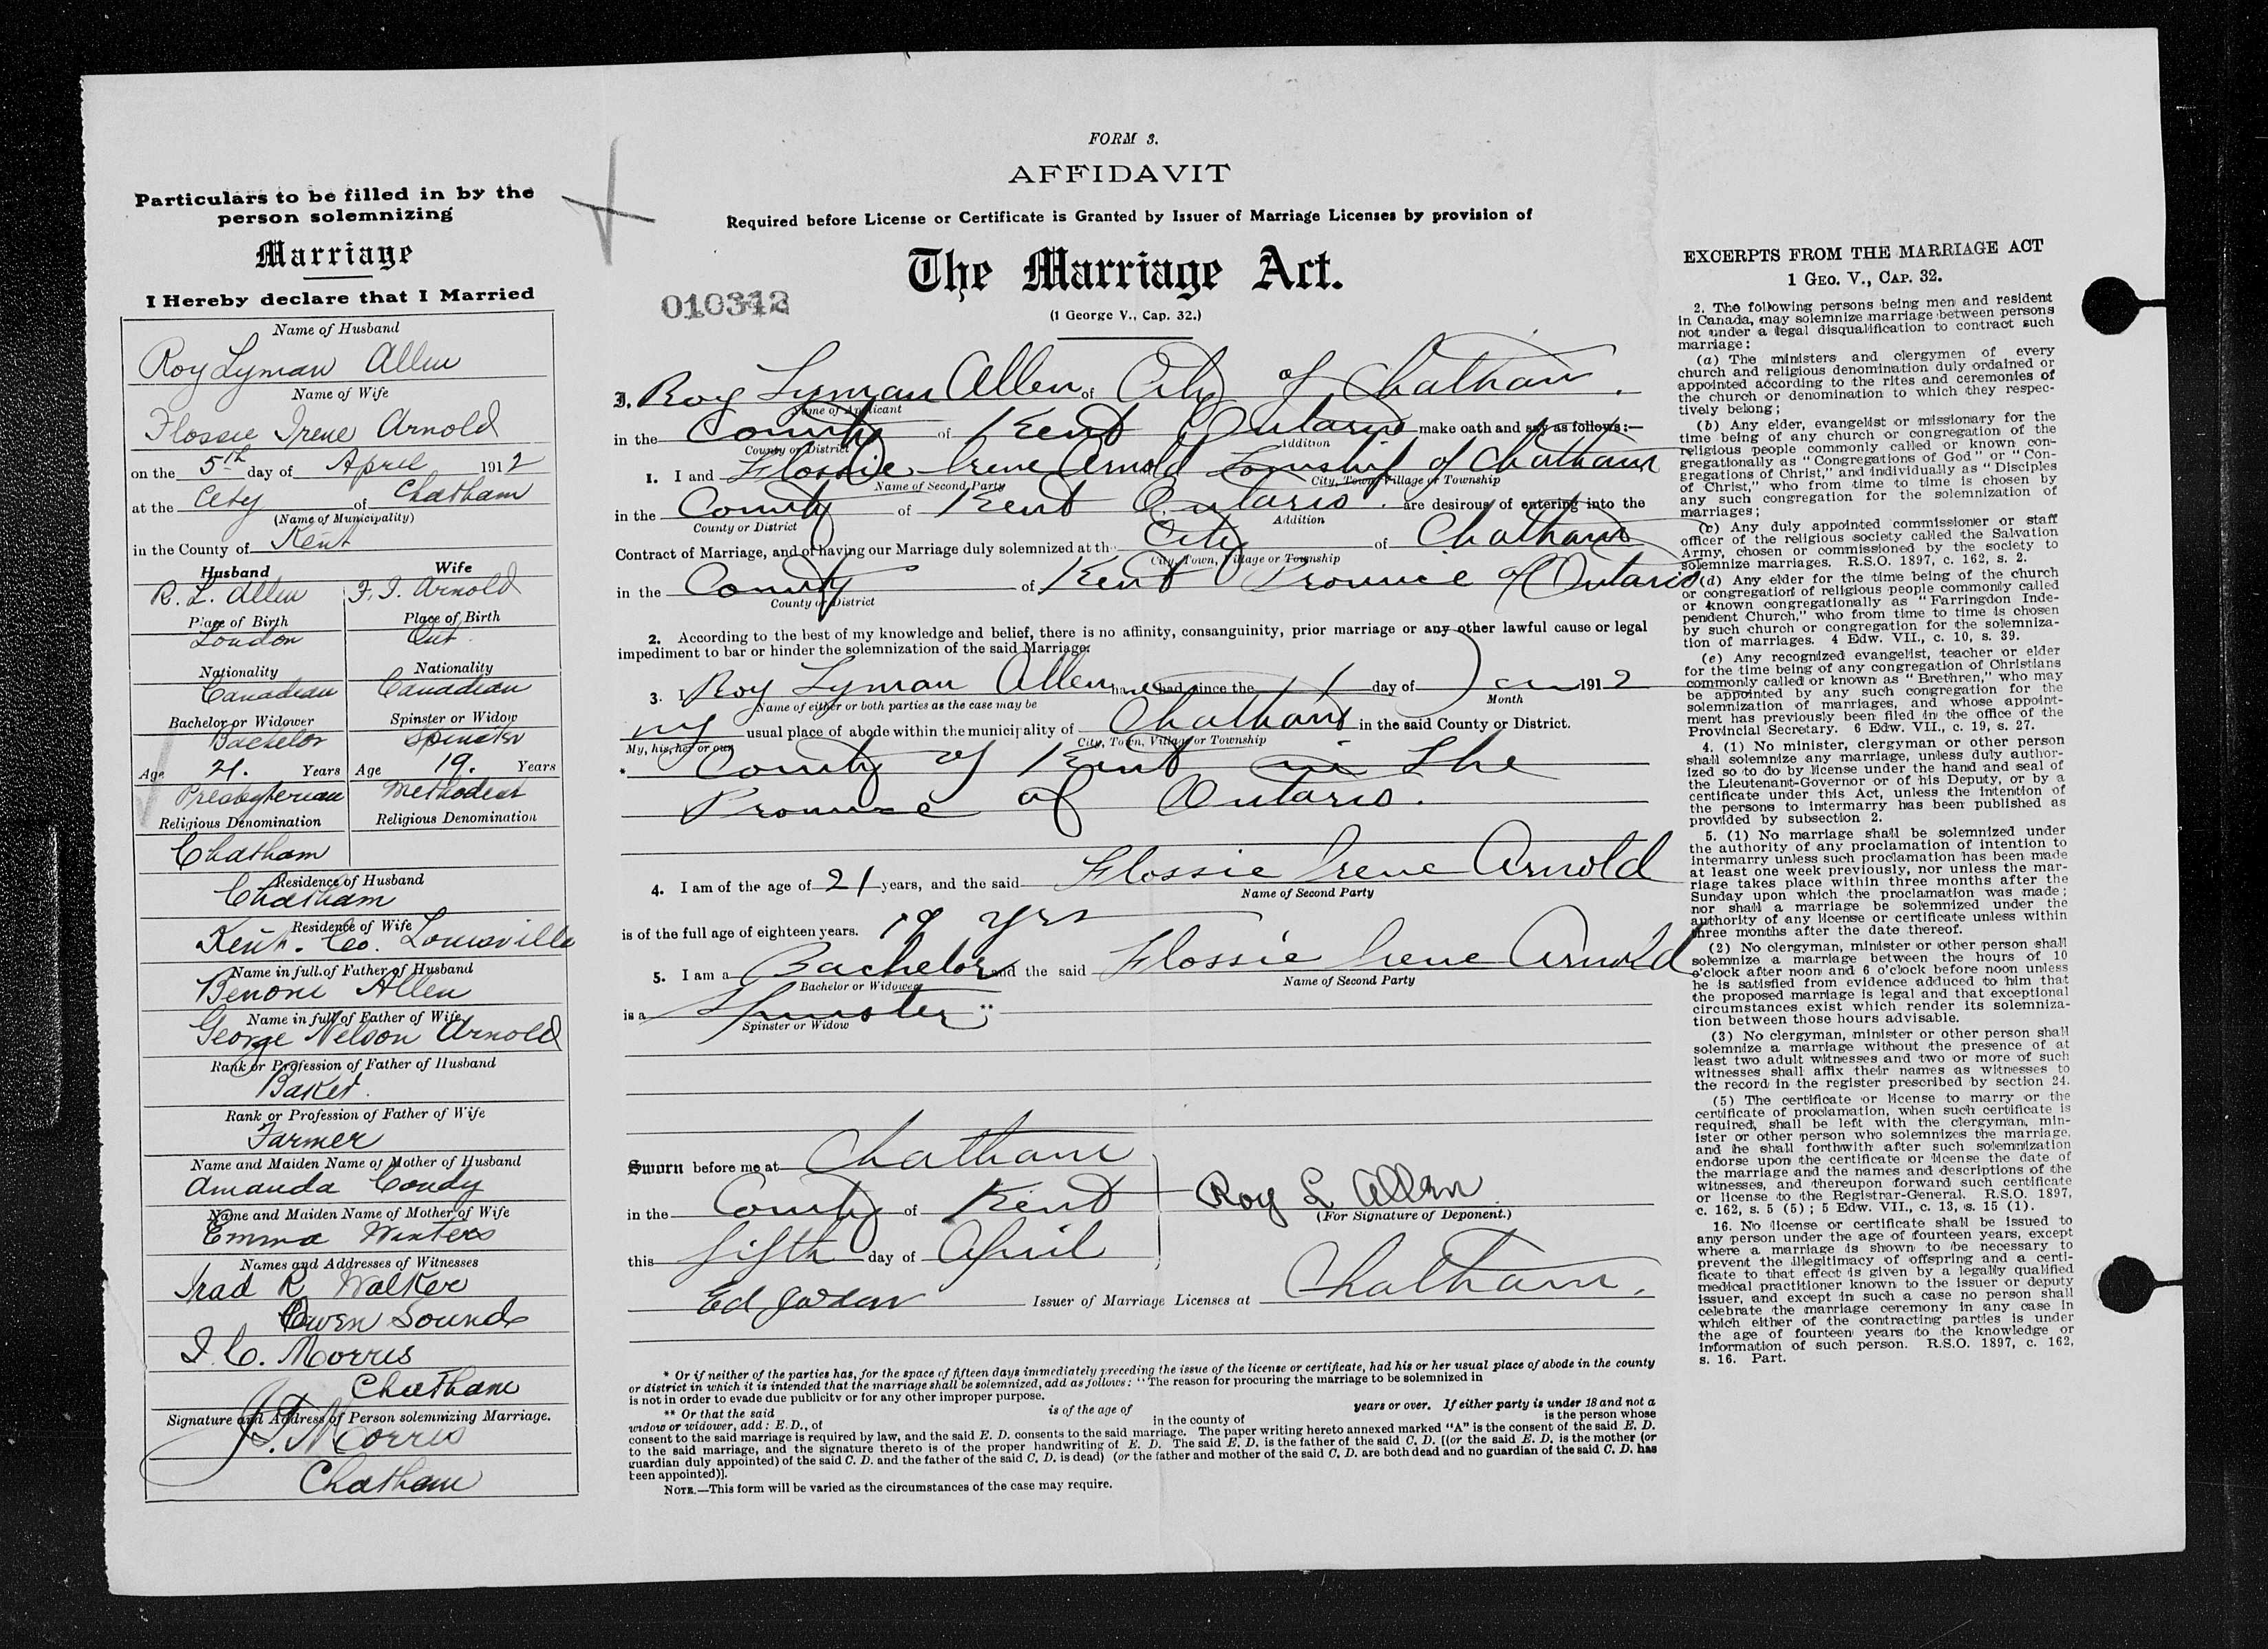 Particulars to be filled in by the
person solemnizing
Marriage
I Hereby declare that I Married
Name of Husband
Roy Lyman Allen
Name of Wife
Flossie Irene Arnold
on the 5th day of April 1912
at the City of Chatham
(Name of Municipality)
in the County of Kent
Husband Wife
R. L. Allen F. I. Arnold
Place of Birth Place of Birth
London Ont.
Nationality Nationality
Canadian Canadian
Bachelor or Widower Spinster or Widow
Bachelor Spinster
Age 21. Years Age 19. Years
Presbyterian Methodist
Religious Denomination Religious Denomination
Chatham
Residence of Husband
Chatham
Residence of Wife
Kent. Co. Louisville
Name in full of Father of Husband
Benoni Allen
Name in full of Father of Wife
George Nelson Arnold
Rank or Profession of Father of Husband
Baker.
Rank or Profession of Father of Wife
Farmer
Name and Maiden Name of Mother of Husband
Amanda Condy
Name and Maiden Name of Mother of Wife
Emma Winters
Names and Addresses of Witnesses
Irad R Walker
Owen Sound
I. C. Morris
Chatham
Signature and Address of Person solemnizing Marriage.
J. T. Morris
Chatham
FORM 3.
AFFIDAVIT
Required before License or Certificate is Granted by Issuer of Marriage Licenses by provision of
The Marriage Act.
010342
(1 George V., Cap. 32.)
I, Roy Lyman Allen of City of Chatham.
Name of Applicant
in the County of Kent Ontario make oath and say as follows:—
County or District Addition
1. I and Flossie Irene Arnold Township of Chatham
Name of Second Party City, Town, Village or Township
in the County of Kent Ontario. are desirous of entering into the
County or District Addition
Contract of Marriage, and of having our Marriage duly solemnized at the City of Chatham
City, Town, Village or Township
in the County of Kent Province of Ontario
County or District
2. According to the best of my knowledge and belief, there is no affinity, consanguinity, prior marriage or any other lawful cause or legal
impediment to bar or hinder the solemnization of the said Marriage.
3. I Roy Lyman Allen have had since the 1 day of Jan 1912
Name of either or both parties as the case may be Month
my usual place of abode within the municipality of Chatham in the said County or District.
My, his, her or our City, Town, Village or Township
* County of Kent in the
Province of Ontario.
4. I am of the age of 21 years, and the said Flossie Irene Arnold
Name of Second Party
is of the full age of eighteen years. 19 yrs
5. I am a Bachelor and the said Flossie Irene Arnold
Bachelor or Widower Name of Second Party
is a Spinster **
Spinster or Widow
Sworn before me at Chatham
in the County of Kent
Roy L Allen
(For Signature of Deponent.)
this fifth day of April
Issuer of Marriage Licenses at Chatham.
* Or if neither of the parties has, for the space of fifteen days immediately preceding the issue of the license or certificate, had his or her usual place of abode in the county
or district in which it is intended that the marriage shall be solemnized, add as follows: "The reason for procuring the marriage to be solemnized in
is not in order to evade due publicity or for any other improper purpose.
** Or that the said is of the age of years or over. If either party is under 18 and not a
widow or widower, add: E. D., of in the county of is the person whose
consent to the said marriage is required by law, and the said E. D. consents to the said marriage. The paper writing hereto annexed marked "A" is the consent of the said E. D.
to the said marriage, and the signature thereto is of the proper handwriting of E. D. The said E. D. is the father of the said C. D. [(or the said E. D. is the mother (or
guardian duly appointed) of the said C. D. and the father of the said C. D. is dead) (or the father and mother of the said C. D. are both dead and no guardian of the said C. D. has
been appointed)].
NOTE.—This form will be varied as the circumstances of the case may require.
EXCERPTS FROM THE MARRIAGE ACT
1 GEO. V., CAP. 32.
2. The following persons being men and resident
in Canada, may solemnize marriage between persons
not under a legal disqualification to contract such
marriage:
(a) The ministers and clergymen of every
church and religious denomination duly ordained or
appointed according to the rites and ceremonies of
the church or denomination to which they respec-
tively belong;
(b) Any elder, evangelist or missionary for the
time being of any church or congregation of the
religious people commonly called or known con-
gregationally as "Congregations of God" or "Con-
gregations of Christ," and individually as "Disciples
of Christ," who from time to time is chosen by
any such congregation for the solemnization of
marriages;
(c) Any duly appointed commissioner or staff
officer of the religious society called the Salvation
Army, chosen or commissioned by the society to
solemnize marriages. R.S.O. 1897, c. 162, s. 2.
(d) Any elder for the time being of the church
or congregation of religious people commonly called
or known congregationally as "Farringdon Inde-
pendent Church," who from time to time is chosen
by such church or congregation for the solemniza-
tion of marriages. 4 Edw. VII., c. 10, s. 39.
(e) Any recognized evangelist, teacher or elder
for the time being of any congregation of Christians
commonly called or known as "Brethren," who may
be appointed by any such congregation for the
solemnization of marriages, and whose appoint-
ment has previously been filed in the office of the
Provincial Secretary. 6 Edw. VII., c. 19, s. 27.
4. (1) No minister, clergyman or other person
shall solemnize any marriage, unless duly author-
ized so to do by license under the hand and seal of
the Lieutenant-Governor or of his Deputy, or by a
certificate under this Act, unless the intention of
the persons to intermarry has been published as
provided by subsection 2.
5. (1) No marriage shall be solemnized under
the authority of any proclamation of intention to
intermarry unless such proclamation has been made
at least one week previously, nor unless the mar-
riage takes place within three months after the
Sunday upon which the proclamation was made;
nor shall a marriage be solemnized under the
authority of any license or certificate unless within
three months after the date thereof.
(2) No clergyman, minister or other person shall
solemnize a marriage between the hours of 10
o'clock after noon and 6 o'clock before noon unless
he is satisfied from evidence adduced to him that
the proposed marriage is legal and that exceptional
circumstances exist which render its solemniza-
tion between those hours advisable.
(3) No clergyman, minister or other person shall
solemnize a marriage without the presence of at
least two adult witnesses and two or more of such
witnesses shall affix their names as witnesses to
the record in the register prescribed by section 24.
(5) The certificate or license to marry or the
certificate of proclamation, when such certificate is
required, shall be left with the clergyman, min-
ister or other person who solemnizes the marriage,
and he shall forthwith after such solemnization
endorse upon the certificate or license the date of
the marriage and the names and descriptions of the
witnesses, and thereupon forward such certificate
or license to the Registrar-General. R.S.O. 1897,
c. 162, s. 5 (5); 5 Edw. VII., c. 13, s. 15 (1).
16. No license or certificate shall be issued to
any person under the age of fourteen years, except
where a marriage is shown to be necessary to
prevent the illegitimacy of offspring and a certi-
ficate to that effect is given by a legally qualified
medical practitioner known to the issuer or deputy
issuer, and except in such a case no person shall
celebrate the marriage ceremony in any case in
which either of the contracting parties is under
the age of fourteen years to the knowledge or
information of such person. R.S.O. 1897, c. 162,
s. 16. Part.